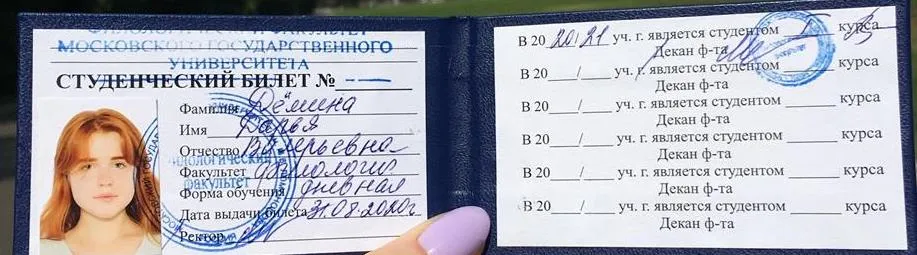 ФИЛОЛОГИЧЕСКИЙ ФАКУЛЬТЕТ
МОСКОВСКОГО ГОСУДАРСТВЕННОГО
УНИВЕРСИТЕТА
СТУДЕНЧЕСКИЙ БИЛЕТ №
Фамилия Дёмина
Имя Дарья
Отчество Валерьевна
Факультет филология
Форма обучения дневная
Дата выдачи билета 31.08.2020г
Ректор
филологический
факультет
В 20 20/21 уч. г. является студентом I курса
Декан ф-та
В 20___/___ уч. г. является студентом ______ курса
Декан ф-та
В 20___/___ уч. г. является студентом ______ курса
Декан ф-та
В 20___/___ уч. г. является студентом ______ курса
Декан ф-та
В 20___/___ уч. г. является студентом ______ курса
Декан ф-та
В 20___/___ уч. г. является студентом ______ курса
Декан ф-та